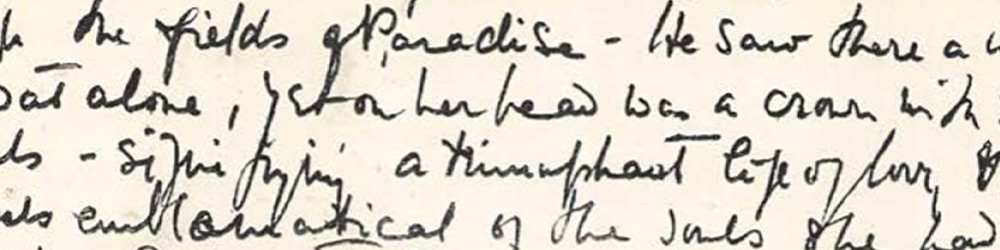 the fields of Paradise - He saw there a
sat alone, yet on her head was a crown with
ls - signifying a triumphant life of love,
els emblematical of the souls she had